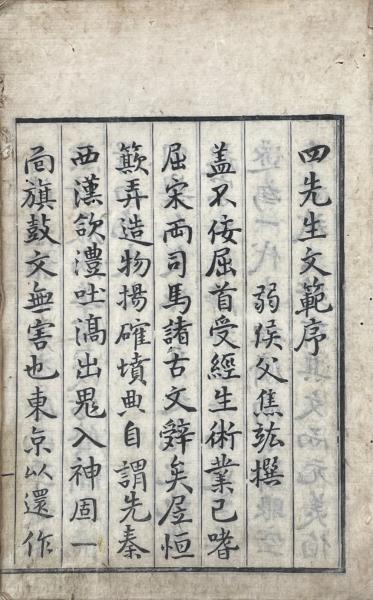 四先生文範序
弱侯父焦竑撰
盖不佞屈首受經生術業已嗜
屈宋两司馬諸古文辭矣居恒
簸弄造物揚確墳典自謂先秦
西漢飲澧吐滈出鬼入神固一
向旗鼓文無害也東京以還作